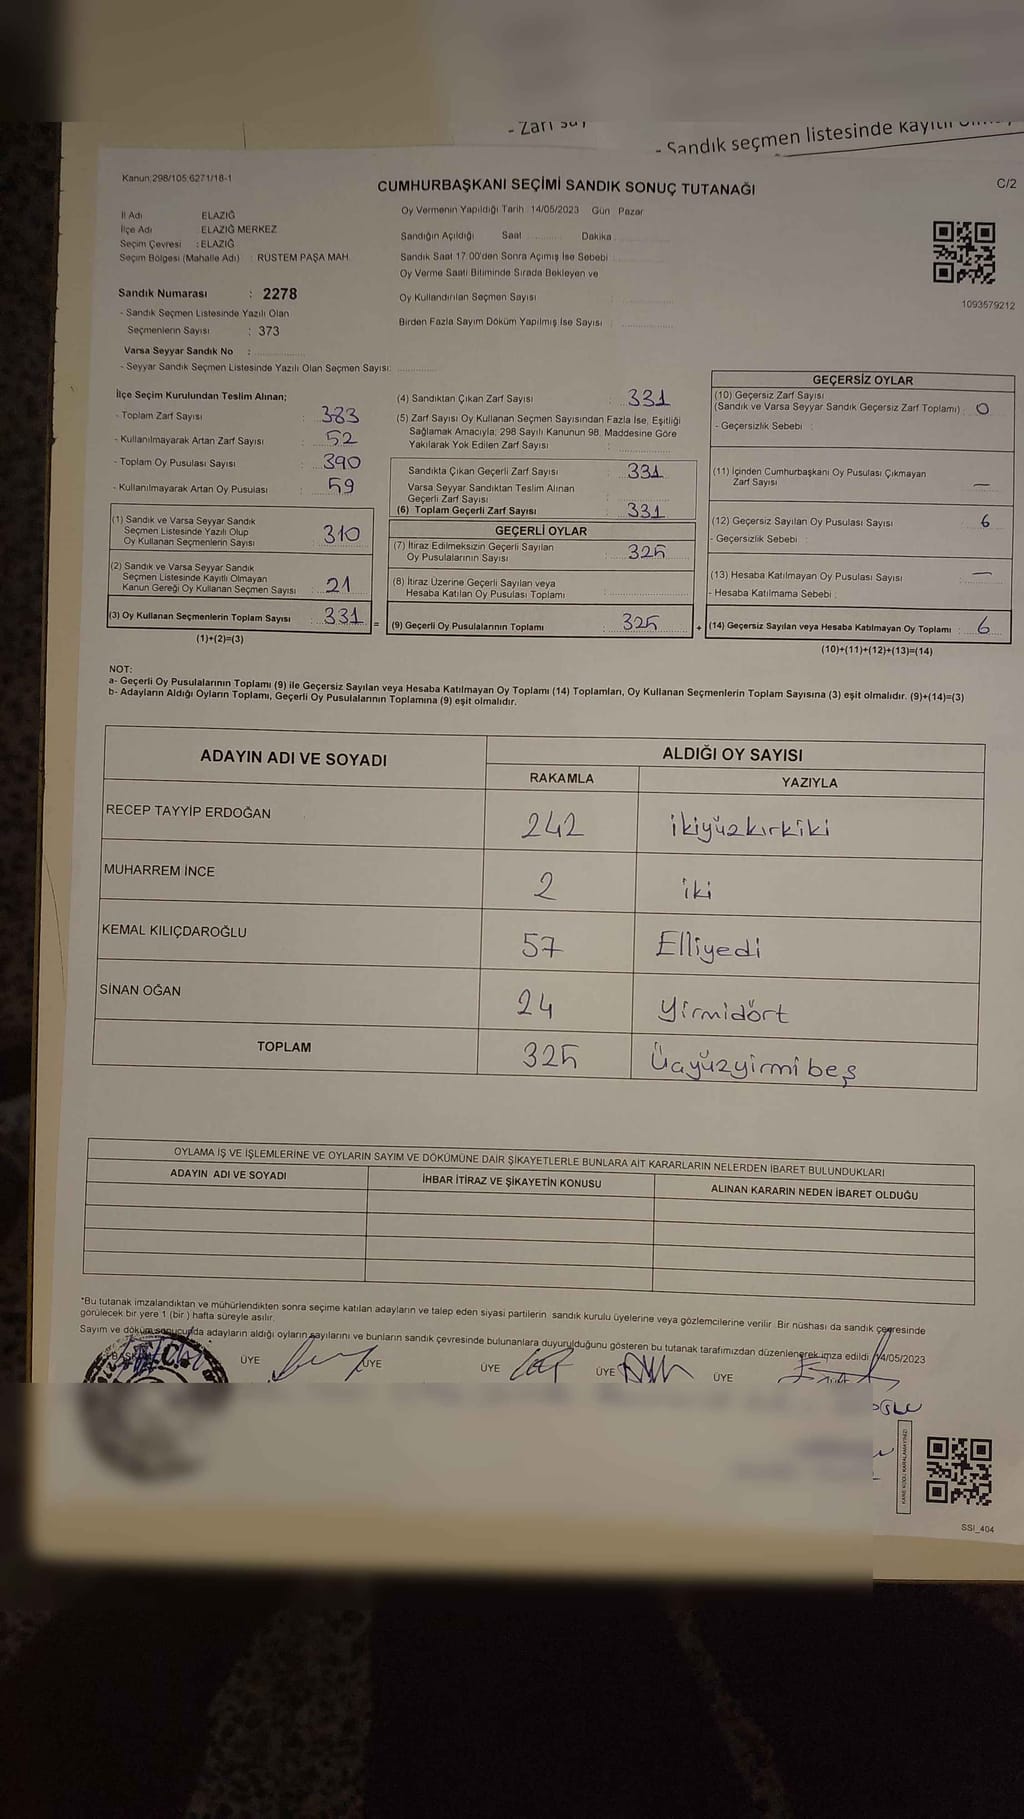 - Zarf say
- Sandık seçmen listesinde kayıtlı
Kanun:298/105;6271/18-1
C/2
CUMHURBAŞKANI SEÇİMİ SANDIK SONUÇ TUTANAĞI
İl Adı ELAZIĞ
İlçe Adı ELAZIĞ MERKEZ
Seçim Çevresi : ELAZIĞ
Seçim Bölgesi (Mahalle Adı) : RÜSTEM PAŞA MAH.
Sandık Numarası : 2278
- Sandık Seçmen Listesinde Yazılı Olan
Seçmenlerin Sayısı : 373
Varsa Seyyar Sandık No :
- Seyyar Sandık Seçmen Listesinde Yazılı Olan Seçmen Sayısı:
Oy Vermenin Yapıldığı Tarih : 14/05/2023 Gün Pazar
Sandığın Açıldığı Saat Dakika
Sandık Saat 17.00'den Sonra Açımış İse Sebebi
Oy Verme Saati Bitiminde Sırada Bekleyen ve
Oy Kullandırılan Seçmen Sayısı :
Birden Fazla Sayım Döküm Yapılmış İse Sayısı :
1093579212
İlçe Seçim Kurulundan Teslim Alınan;
- Toplam Zarf Sayısı : 383
- Kullanılmayarak Artan Zarf Sayısı : 52
- Toplam Oy Pusulası Sayısı : 390
- Kullanılmayarak Artan Oy Pusulası : 59
(1) Sandık ve Varsa Seyyar Sandık
Seçmen Listesinde Yazılı Olup
Oy Kullanan Seçmenlerin Sayısı : 310
(2) Sandık ve Varsa Seyyar Sandık
Seçmen Listesinde Kayıtlı Olmayan
Kanun Gereği Oy Kullanan Seçmen Sayısı : 21
(3) Oy Kullanan Seçmenlerin Toplam Sayısı : 331 =
(1)+(2)=(3)
(4) Sandıktan Çıkan Zarf Sayısı : 331
(5) Zarf Sayısı Oy Kullanan Seçmen Sayısından Fazla İse, Eşitliği
Sağlamak Amacıyla; 298 Sayılı Kanunun 98. Maddesine Göre
Yakılarak Yok Edilen Zarf Sayısı
Sandıkta Çıkan Geçerli Zarf Sayısı : 331
Varsa Seyyar Sandıktan Teslim Alınan
Geçerli Zarf Sayısı
(6) Toplam Geçerli Zarf Sayısı : 331
GEÇERLİ OYLAR
(7) İtiraz Edilmeksizin Geçerli Sayılan
Oy Pusulalarının Sayısı : 325
(8) İtiraz Üzerine Geçerli Sayılan veya
Hesaba Katılan Oy Pusulası Toplamı :
(9) Geçerli Oy Pusulalarının Toplamı : 325 +
GEÇERSİZ OYLAR
(10) Geçersiz Zarf Sayısı
(Sandık ve Varsa Seyyar Sandık Geçersiz Zarf Toplamı) : 0
- Geçersizlik Sebebi :
(11) İçinden Cumhurbaşkanı Oy Pusulası Çıkmayan
Zarf Sayısı : —
(12) Geçersiz Sayılan Oy Pusulası Sayısı : 6
- Geçersizlik Sebebi :
(13) Hesaba Katılmayan Oy Pusulası Sayısı : —
- Hesaba Katılmama Sebebi :
(14) Geçersiz Sayılan veya Hesaba Katılmayan Oy Toplamı : 6
(10)+(11)+(12)+(13)=(14)
NOT:
a- Geçerli Oy Pusulalarının Toplamı (9) ile Geçersiz Sayılan veya Hesaba Katılmayan Oy Toplamı (14) Toplamları, Oy Kullanan Seçmenlerin Toplam Sayısına (3) eşit olmalıdır. (9)+(14)=(3)
b- Adayların Aldığı Oyların Toplamı, Geçerli Oy Pusulalarının Toplamına (9) eşit olmalıdır.
ADAYIN ADI VE SOYADI ALDIĞI OY SAYISI
RAKAMLA YAZIYLA
RECEP TAYYİP ERDOĞAN 242 ikiyüzkırkiki
MUHARREM İNCE 2 iki
KEMAL KILIÇDAROĞLU 57 Elliyedi
SİNAN OĞAN 24 yirmidört
TOPLAM 325 Üçyüzyirmi beş
OYLAMA İŞ VE İŞLEMLERİNE VE OYLARIN SAYIM VE DÖKÜMÜNE DAİR ŞİKAYETLERLE BUNLARA AİT KARARLARIN NELERDEN İBARET BULUNDUKLARI
ADAYIN ADI VE SOYADI İHBAR İTİRAZ VE ŞİKAYETİN KONUSU ALINAN KARARIN NEDEN İBARET OLDUĞU
*Bu tutanak imzalandıktan ve mühürlendikten sonra seçime katılan adayların ve talep eden siyasi partilerin sandık kurulu üyelerine veya gözlemcilerine verilir. Bir nüshası da sandık çevresinde
görülecek bir yere 1 (bir) hafta süreyle asılır.
Sayım ve döküm sonucunda adayların aldığı oyların sayılarını ve bunların sandık çevresinde bulunanlara duyurulduğunu gösteren bu tutanak tarafımızdan düzenlenerek imza edildi 14/05/2023
BAŞKAN ÜYE ÜYE ÜYE ÜYE ÜYE
KARE KODU KARALAMAYINIZ!
SSI_404